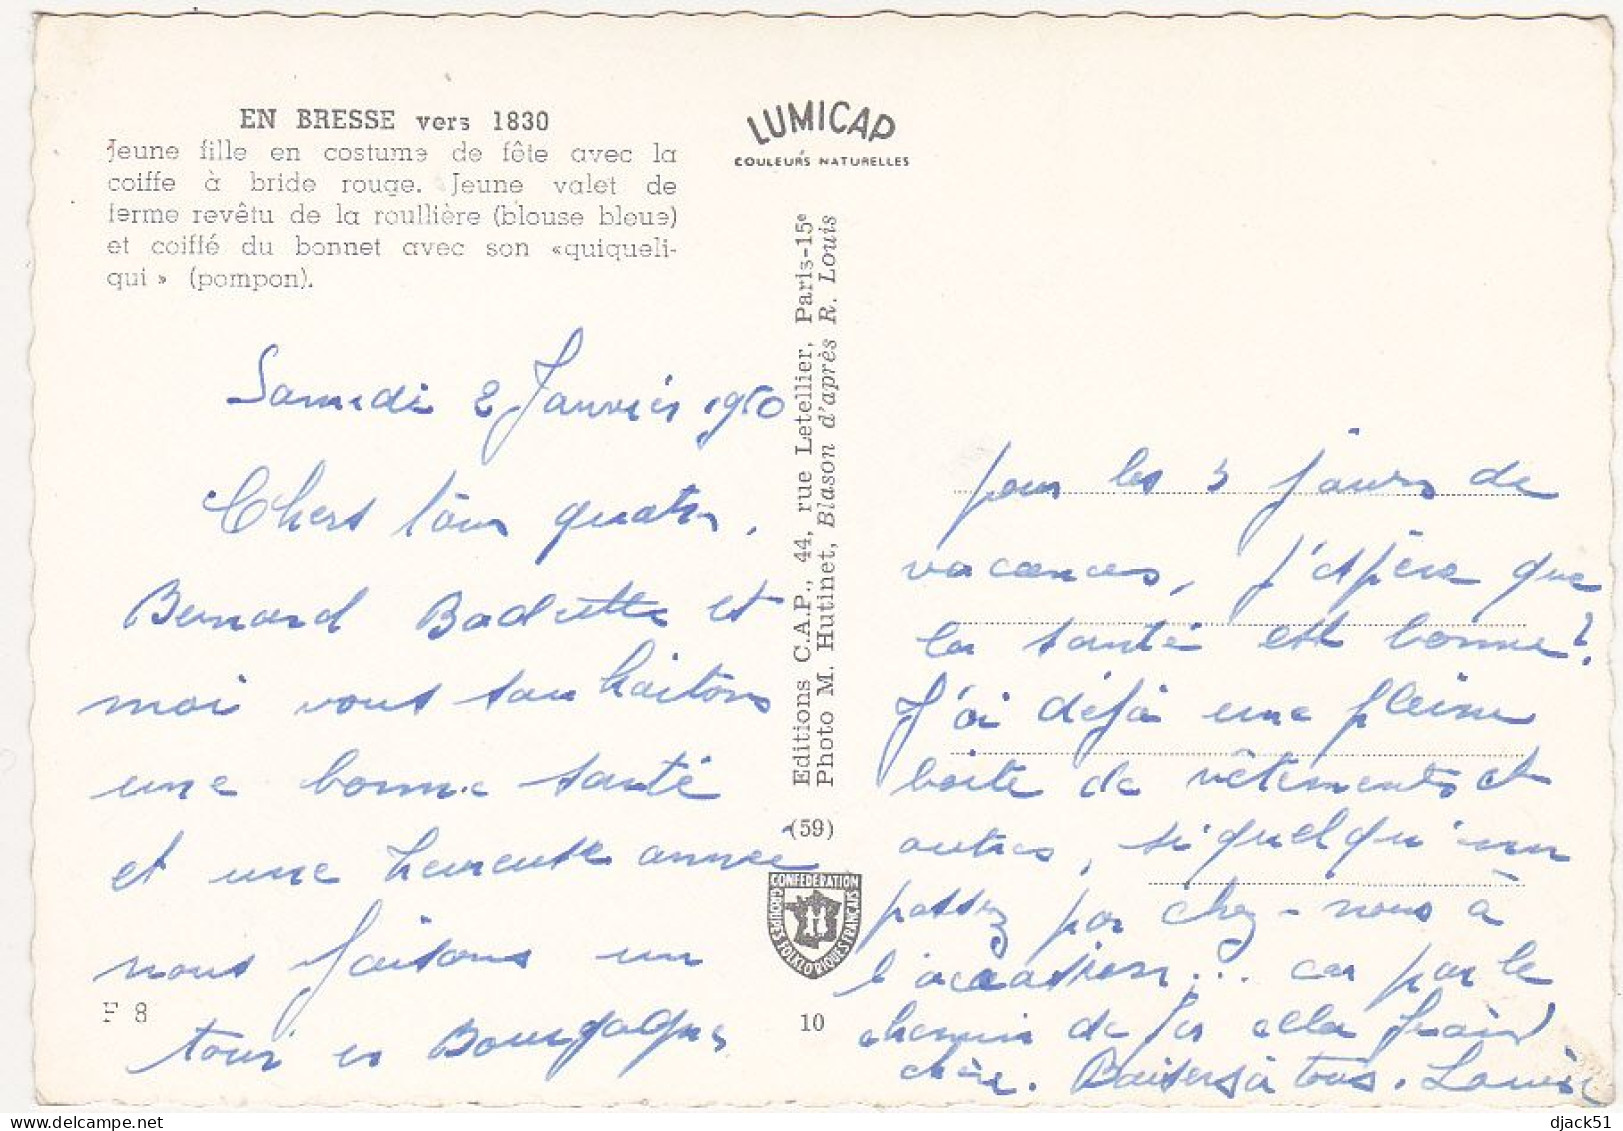 EN BRESSE vers 1830
Jeune fille en costume de fête avec la
coiffe à bride rouge. Jeune valet de
ferme revêtu de la roullière (blouse bleue)
et coiffé du bonnet avec son «quiqueli-
qui» (pompon).
LUMICAP
COULEURS NATURELLES
Samedi 2 Janvier 1960
Chers tous quatre,
Bernard et
moi vous souhaitons
une bonne santé
et une heureuse année
nous faisons un
tour en Bourgogne
F 8
Editions C.A.P., 44, rue Letellier, Paris-15e
Photo M. Hutinet, Blason d'après R. Louis
(59)
CONFEDERATION
GROUPES FOLKLORIQUES FRANÇAIS
10
pour les 3 jours de
vacances, j'espère que
la santé est bonne?
J'ai déjà une pleine
boite de vêtements et
autres, si quelqu'un
passez par chez-nous à
l'occasion... car par le
chemin de fer cela ferait
chère. Baisers à tous. Louise
djack51